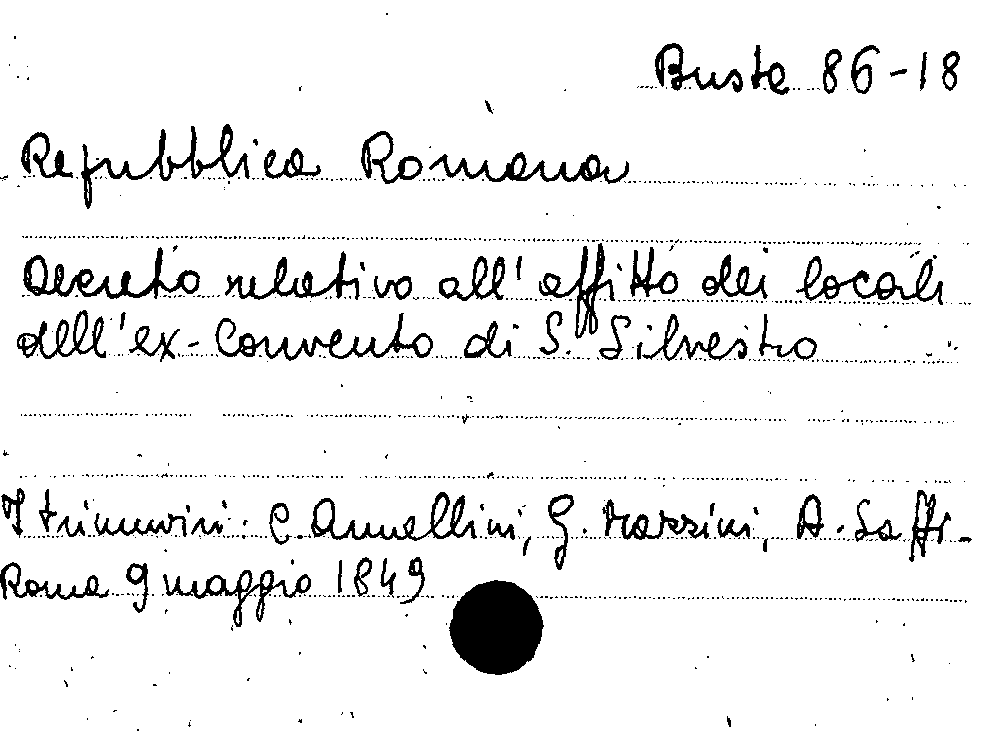 Busta 86-18
Repubblica Romana
Decreto relativo all'affitto dei locali
dell'ex-Convento di S. Silvestro
I triumviri: C. Armellini, G. Mazzini, A. Saffi-
Roma 9 maggio 1849